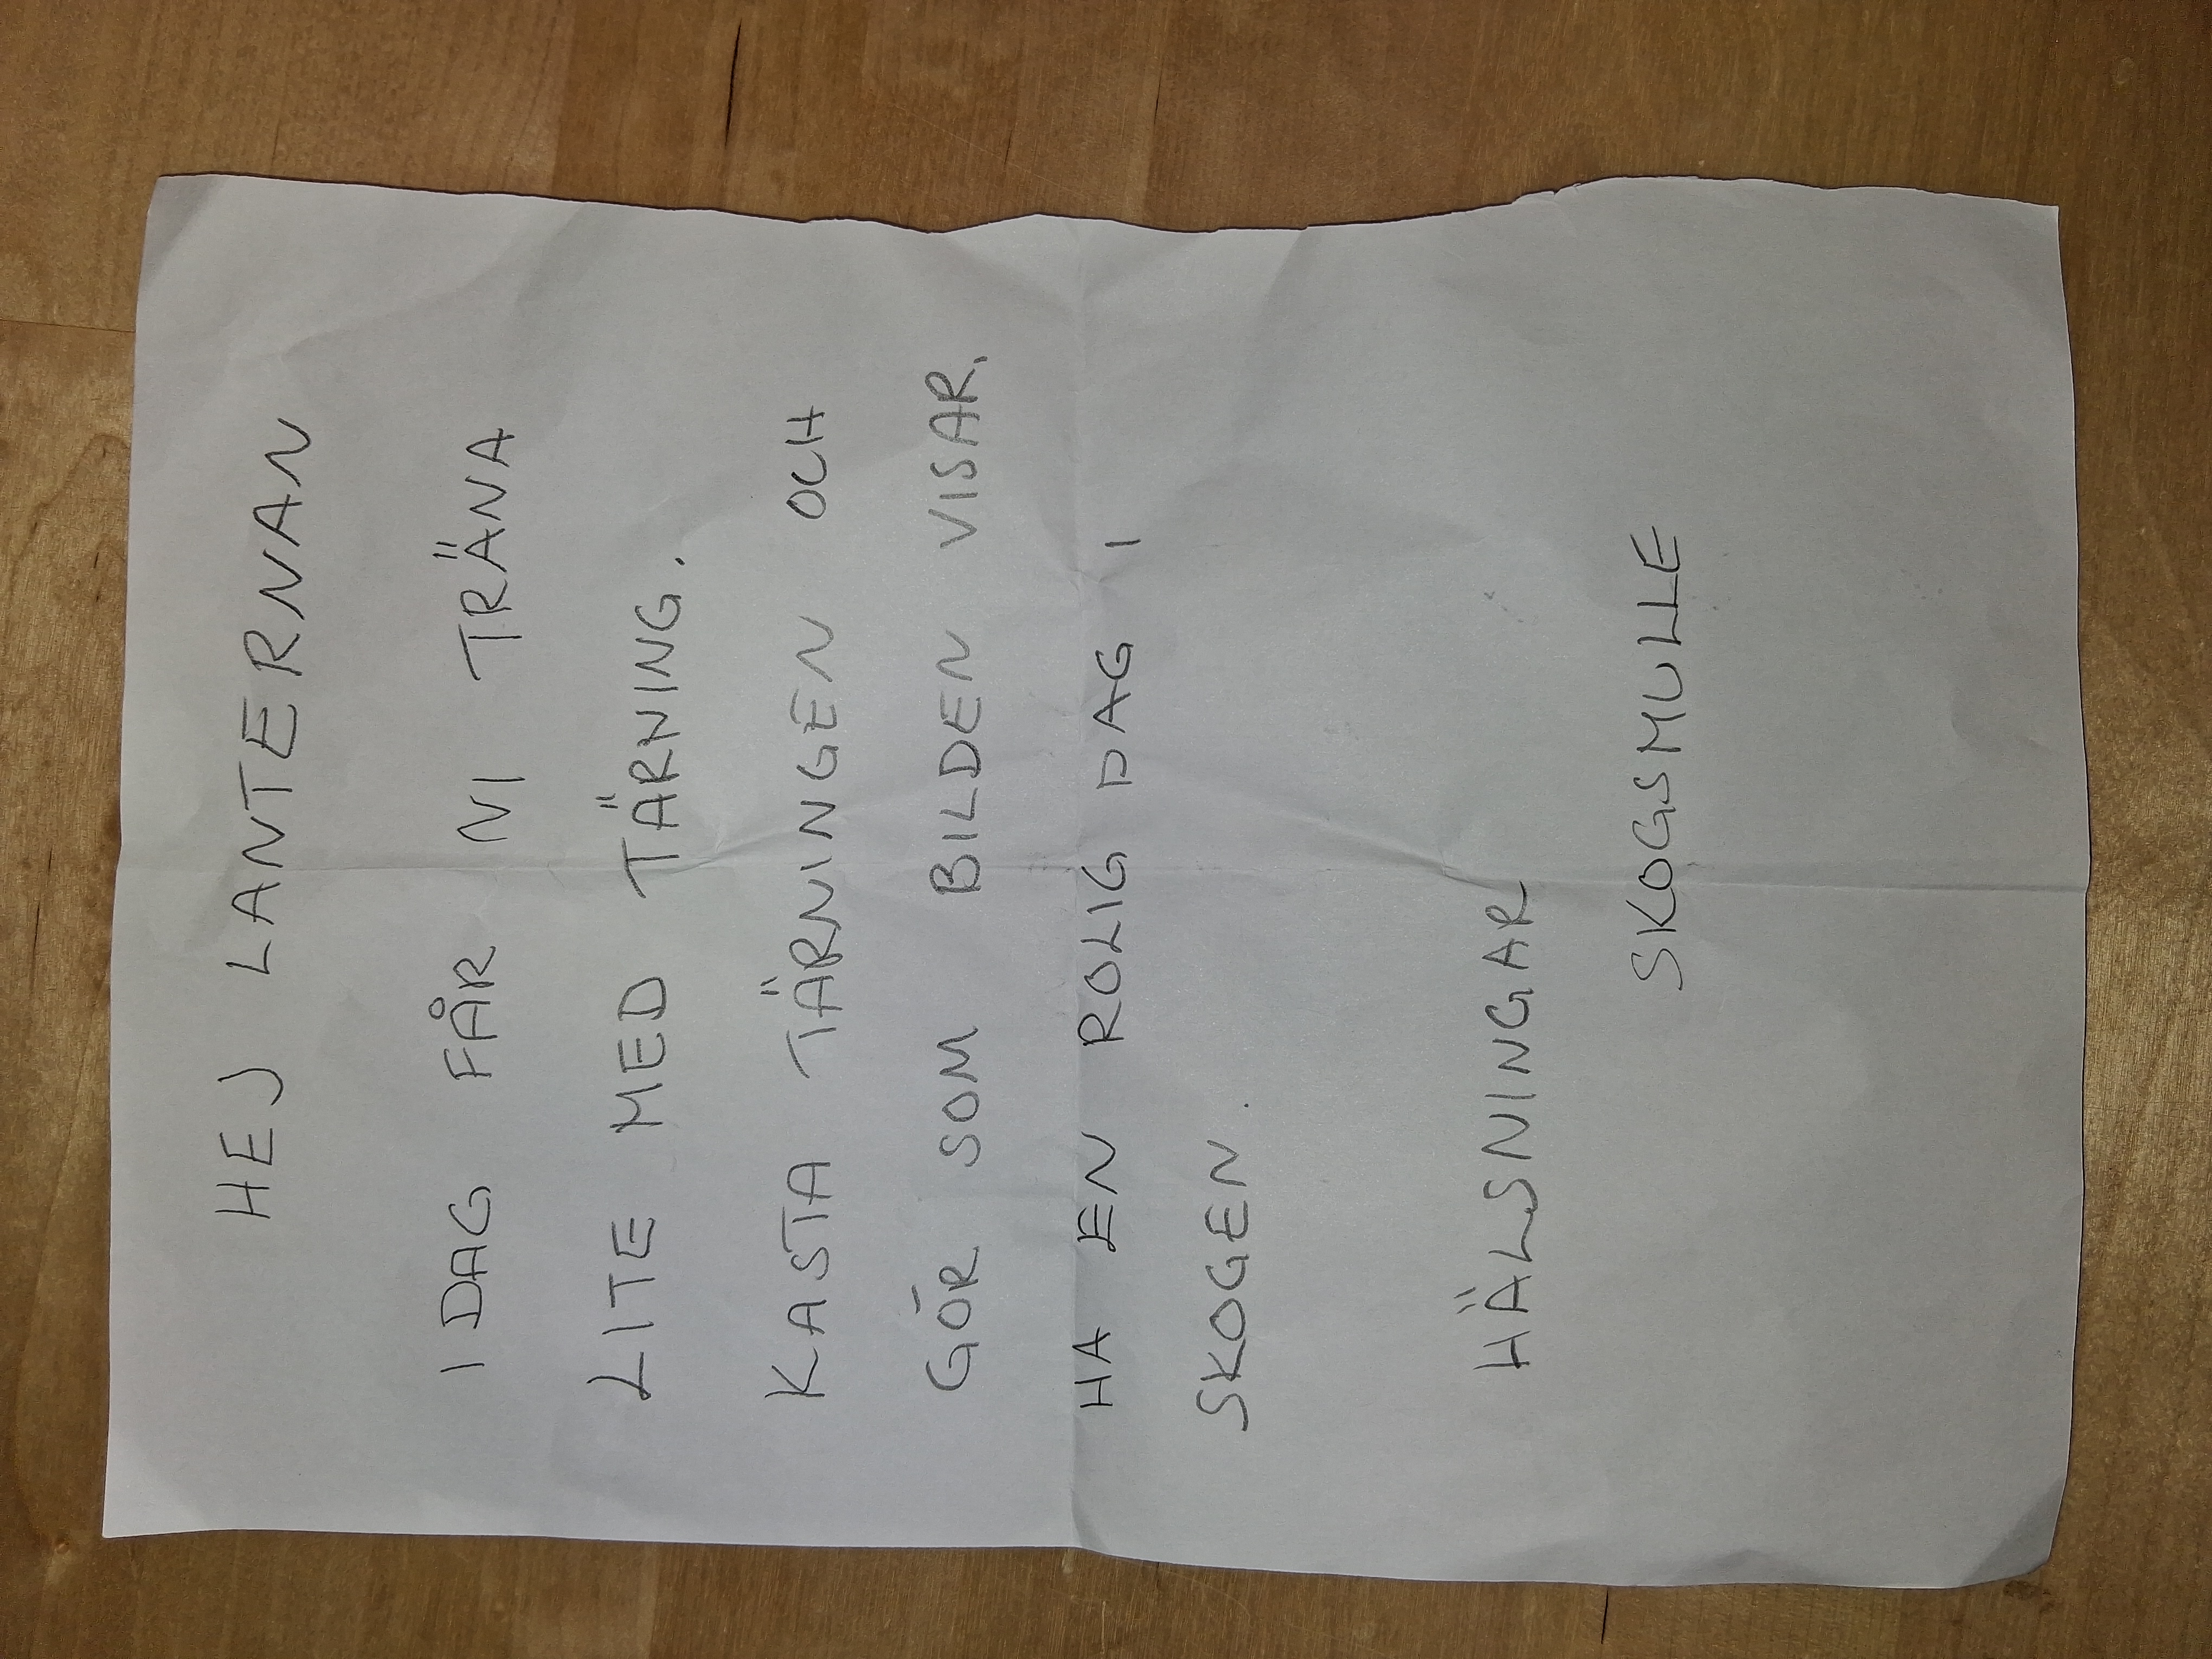 HEJ LANTERNAN
IDAG FÅR NI TRÄNA
LITE MED TÄRNING.
KASTA TÄRNINGEN OCH
GÖR SOM BILDEN VISAR.
HA EN ROLIG DAG I
SKOGEN.
HÄLSNINGAR
SKOGSMULLE